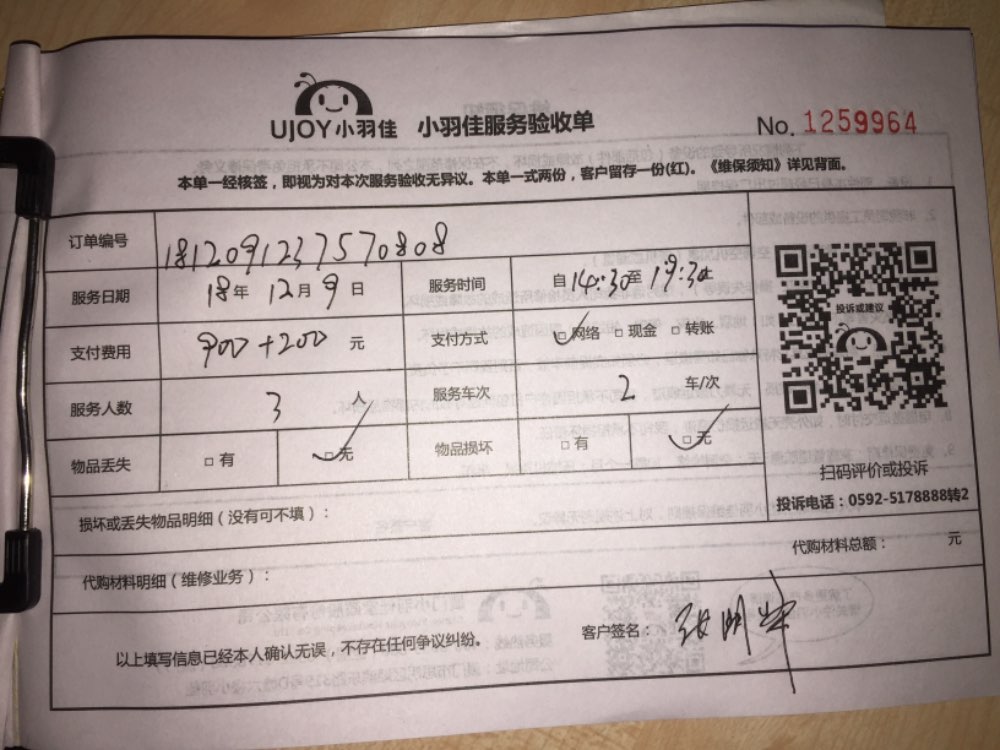 UJOY小羽佳 小羽佳服务验收单
No. 1259964
本单一经核签，即视为对本次服务验收无异议。本单一式两份，客户留存一份(红)。《维保须知》详见背面。
订单编号 1812091237570808
服务日期 18年 12月 9日 服务时间 自14:30至19:30
支付费用 900+200 元 支付方式 □网络 □现金 □转账
服务人数 3 人 服务车次 2 车/次
物品丢失 □有 □无 物品损坏 □有 □无
投诉或建议
扫码评价或投诉
投诉电话：0592-5178888转2
损坏或丢失物品明细（没有可不填）：
代购材料明细（维修业务）： 代购材料总额： 元
以上填写信息已经本人确认无误，不存在任何争议纠纷。 客户签名：张明